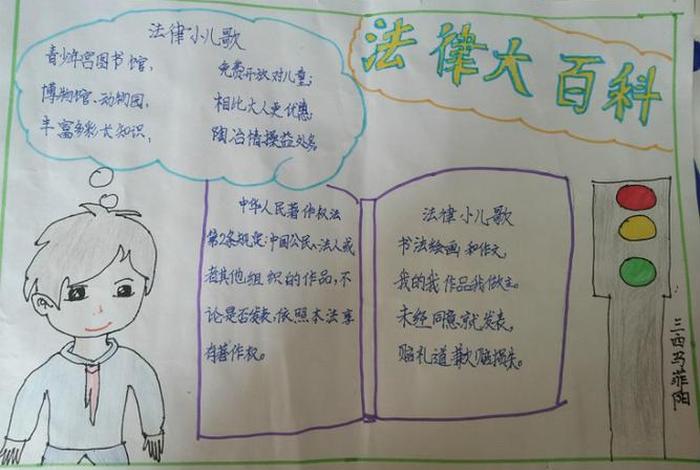 法律大百科
法律小儿歌
青少年宫图书馆,
免费开放对儿童;
博物馆、动物园,
相比大人更优惠;
丰富多彩长知识,
陶冶情操益处多。
中华人民著作权法
第2条规定:中国公民、法人或
者其他组织的作品,不
论是否发表,依照本法享
有著作权。
法律小儿歌
书法绘画和作文,
我的我作品我做主。
未经同意就发表,
赔礼道歉赔损失。
三西马菲阳